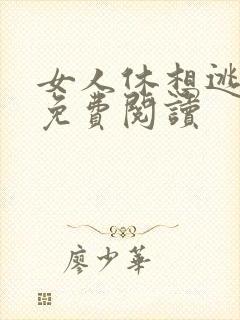 女人休想逃
免費閱讀
廖少華